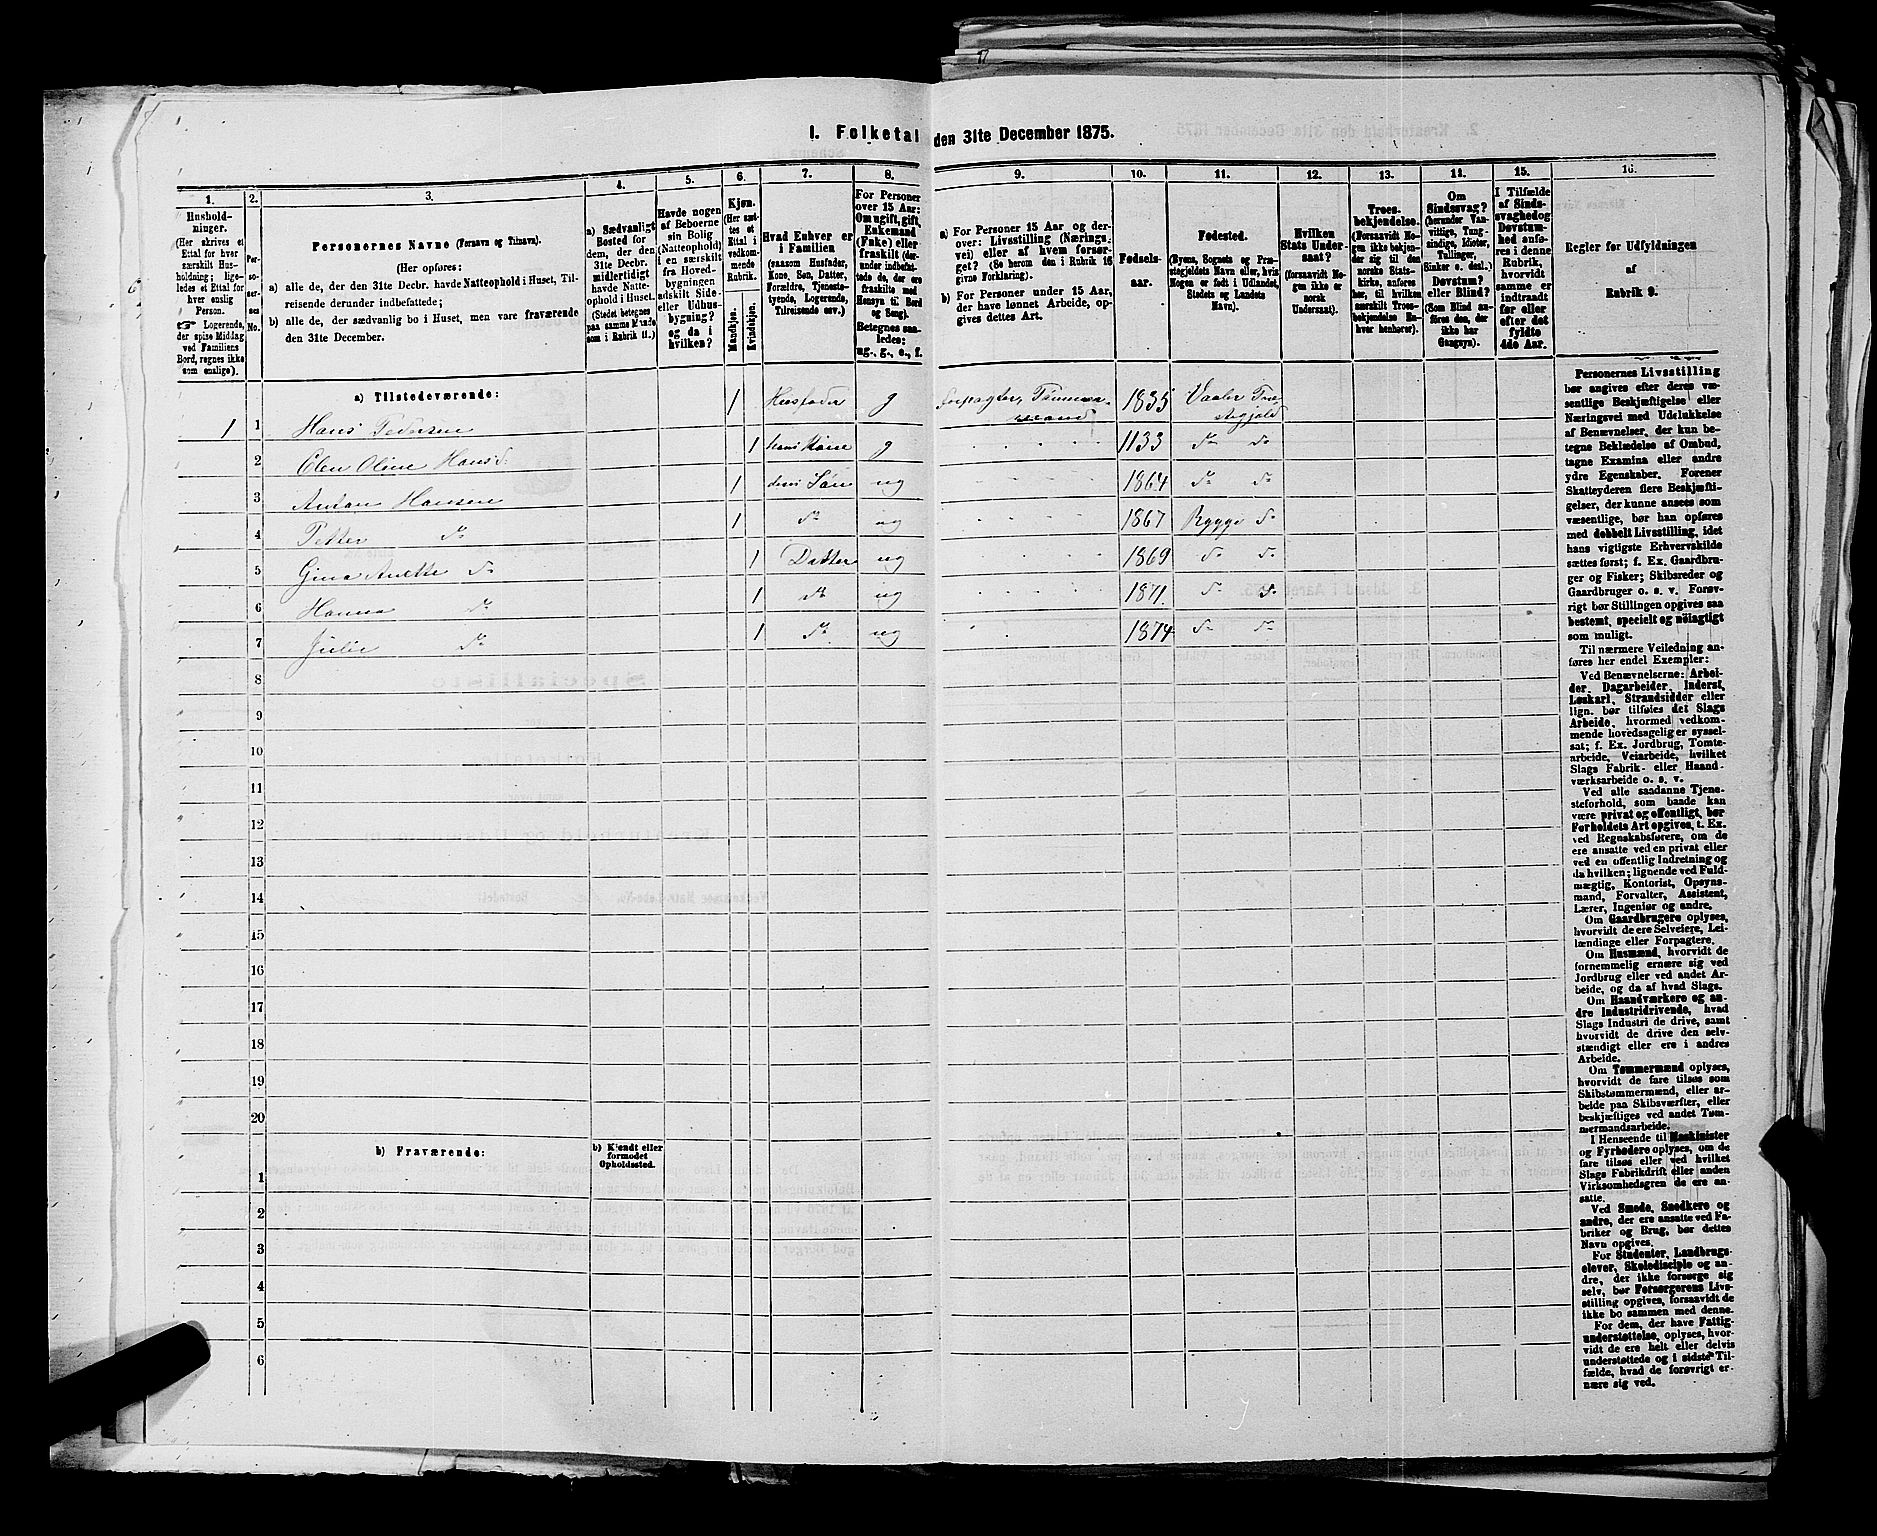 I. Folketal den 31te December 1875.
1.
Hushold-
ninger.
(Her skrives et
Ettal for hver
særskilt Hus-
holdning; lige-
ledes et Ettal for
hver enslig
Person.
☞ Logerende,
der spise Middag
ved Familiens
Bord, regnes ikke
som enslige).
2.
Per-
so-
ner-
nes
No.
3.
Personernes Navne (Fornavn og Tilnavn).
(Her opføres:
a) alle de, der den 31te Decbr. havde Natteophold i Huset, Til-
reisende derunder indbefattede;
b) alle de, der sædvanlig bo i Huset, men vare fraværende
den 31te December.
4.
a) Sædvanligt
Bosted for
dem, der den
31te Decbr.
midlertidigt
havde Natte-
ophold i Huset.
(Stedet betegnes
paa samme Maade
som i Rubrik 11.)
5.
Havde nogen
af Beboerne
sin Bolig
(Natteophold)
i en særskilt
fra Hoved-
bygningen
adskilt Side-
eller Udhus-
bygning?
og da i
hvilken?
6.
Kjøn.
(Her sæt-
tes et
Ettal i
vedkom-
mende
Rubrik.
Mandkjøn.
Kvindekjøn.
7.
Hvad Enhver er
i Familien
(saasom Husfader,
Kone, Søn, Datter,
Forældre, Tjeneste-
tyende, Logerende,
Tilreisende osv.)
8.
For Personer
over 15 Aar:
Om ugift, gift,
Enkemand
(Enke) eller
fraskilt (der-
under indbefat-
tede de, der ere
fraskilte med
Hensyn til Bord
og Seng).
Betegnes saa-
ledes:
ug., g., e., f.
9.
a) For Personer 15 Aar og der-
over: Livsstilling (Nærings-
vei) eller af hvem forsør-
get? (Se herom den i Rubrik 16
givne Forklaring).
b) For Personer under 15 Aar,
der have lønnet Arbeide, op-
gives dettes Art.
10.
Fødsels-
aar.
11.
Fødested.
(Byens, Sognets og Præ-
stegjeldets Navn eller, hvis
Nogen er født i Udlandet,
Stedets og Landets
Navn).
12.
Hvilken
Stats Under-
saat?
(forsaavidt No-
gen ikke er
norsk
Undersaat).
13.
Troes-
bekjendelse.
(Forsaavidt No-
gen ikke bekjen-
der sig til den
norske Stats-
kirke, anføres
her, til hvilken
særskilt Troes-
bekjendelse En-
hver henhører).
14.
Om
Sindssvag?
(herunder Van-
vittige, Tung-
sindige, Idioter,
Tullinger,
Sinker o. desl.)
Døvstum?
eller Blind?
(Som Blind an-
føres den, der
ikke har
Gangsyn).
15.
I Tilfælde
af Sinds-
svaghed og
Døvstum-
hed anfø-
res i denne
Rubrik,
hvorvidt
samme er
indtraadt
før eller
efter det
fyldte
4de Aar.
16.
Regler for Udfyldningen
af
Rubrik 9.
a) Tilstedeværende:
1 1 Hans Pedersen 1 Husfader g forpagter, Tømmer-
mand 1835 Vaaler Præ-
stegjeld
2 Elen Oline Hansd. 1 hans Kone g 1133 do do
3 Anton Hansen 1 deres Søn ug 1864 do do
4 Petter do 1 do ug 1867 Rygge do
5 Gina Anette do 1 Datter ug 1869 do do
6 Hanna do 1 do ug 1871. do do
7 Julie do 1 do ug 1874 do do
8
9
10
11
12
13
14
15
16
17
18
19
20
b) Fraværende:
b) Kjendt eller
formodet
Opholdssted.
1
2
3
4
5
6
Personernes Livsstilling
bør angives efter deres væ-
sentlige Beskjæftigelse eller
Næringsvei med Udelukkelse
af Benævnelser, der kun be-
tegne Beklædelse af Ombud,
tagne Examina eller andre
ydre Egenskaber. Forener
Skatteyderen flere Beskjæfti-
gelser, der kunne ansees som
væsentlige, bør han opføres
med dobbelt Livsstilling, idet
hans vigtigste Erhvervskilde
sættes først; f. Ex. Gaardbru-
ger og Fisker; Skibsreder og
Gaardbruger o. s. v. Forøv-
rigt bør Stillingen opgives saa
bestemt, specielt og nöiagtigt
som muligt.
Til nærmere Veiledning an-
føres her endel Exempler:
Ved Benævnelserne: Arbei-
der, Dagarbeider, Inderst,
Løskarl, Strandsidder eller
lign. bør tilføies det Slags
Arbeide, hvormed vedkom-
mende hovedsagelig er syssel-
sat; f. Ex. Jordbrug, Tomte-
arbeide, Veiarbeide, hvilket
Slags Fabrik- eller Haand-
værksarbeide o. s. v.
Ved alle saadanne Tjene-
steforhold, som baade kan
være privat og offentligt, bør
Forholdets Art opgives, t. Ex.
ved Regnskabsførere, om de
ere ansatte ved en privat eller
ved en offentlig Indretning og
da hvilken; lignende ved Fuld-
mægtig, Kontorist, Opsyns-
mand, Forvalter, Assistent,
Lærer, Ingeniør og andre.
Om Gaardbrugere oplyses,
hvorvidt de ere Selveiere, Lei-
lændinge eller Forpagtere.
Om Husmænd, hvorvidt de
fornemmelig ernære sig ved
Jordbrug eller ved andet Ar-
beide, og da af hvad Slags.
Om Haandværkere og an-
dre Industridrivende, hvad
Slags Industri de drive, samt
hvorvidt de drive den selv-
stændigt eller ere i andres
Arbeide.
Om Tømmermænd oplyses,
hvorvidt de fare tilsøs som
Skibstømmermænd, eller ar-
beide paa Skibsværfter, eller
beskjæftiges ved andet Tøm-
mermandsarbeide.
I Henseende til Maskinister
og Fyrbødere oplyses, om de
fare tilsøs eller ved hvilket
Slags Fabrikdrift eller anden
Virksomhedsgren de ere an-
satte.
Ved Smede, Snedkere og
andre, der ere ansatte ved Fa-
briker og Brug, bør dettes
Navn opgives.
For Studenter, Landbrugs-
elever, Skoledisciple og an-
dre, der ikke forsørge sig
selv, bør Forsørgerens Livs-
stilling opgives, forsaavidt de
ikke bo sammen med denne.
For dem, der have Fattig-
understøttelse, oplyses, hvor-
vidt de ere helt eller delvis
understøttede og i sidste Til-
fælde, hvad de forøvrigt er-
nære sig ved.